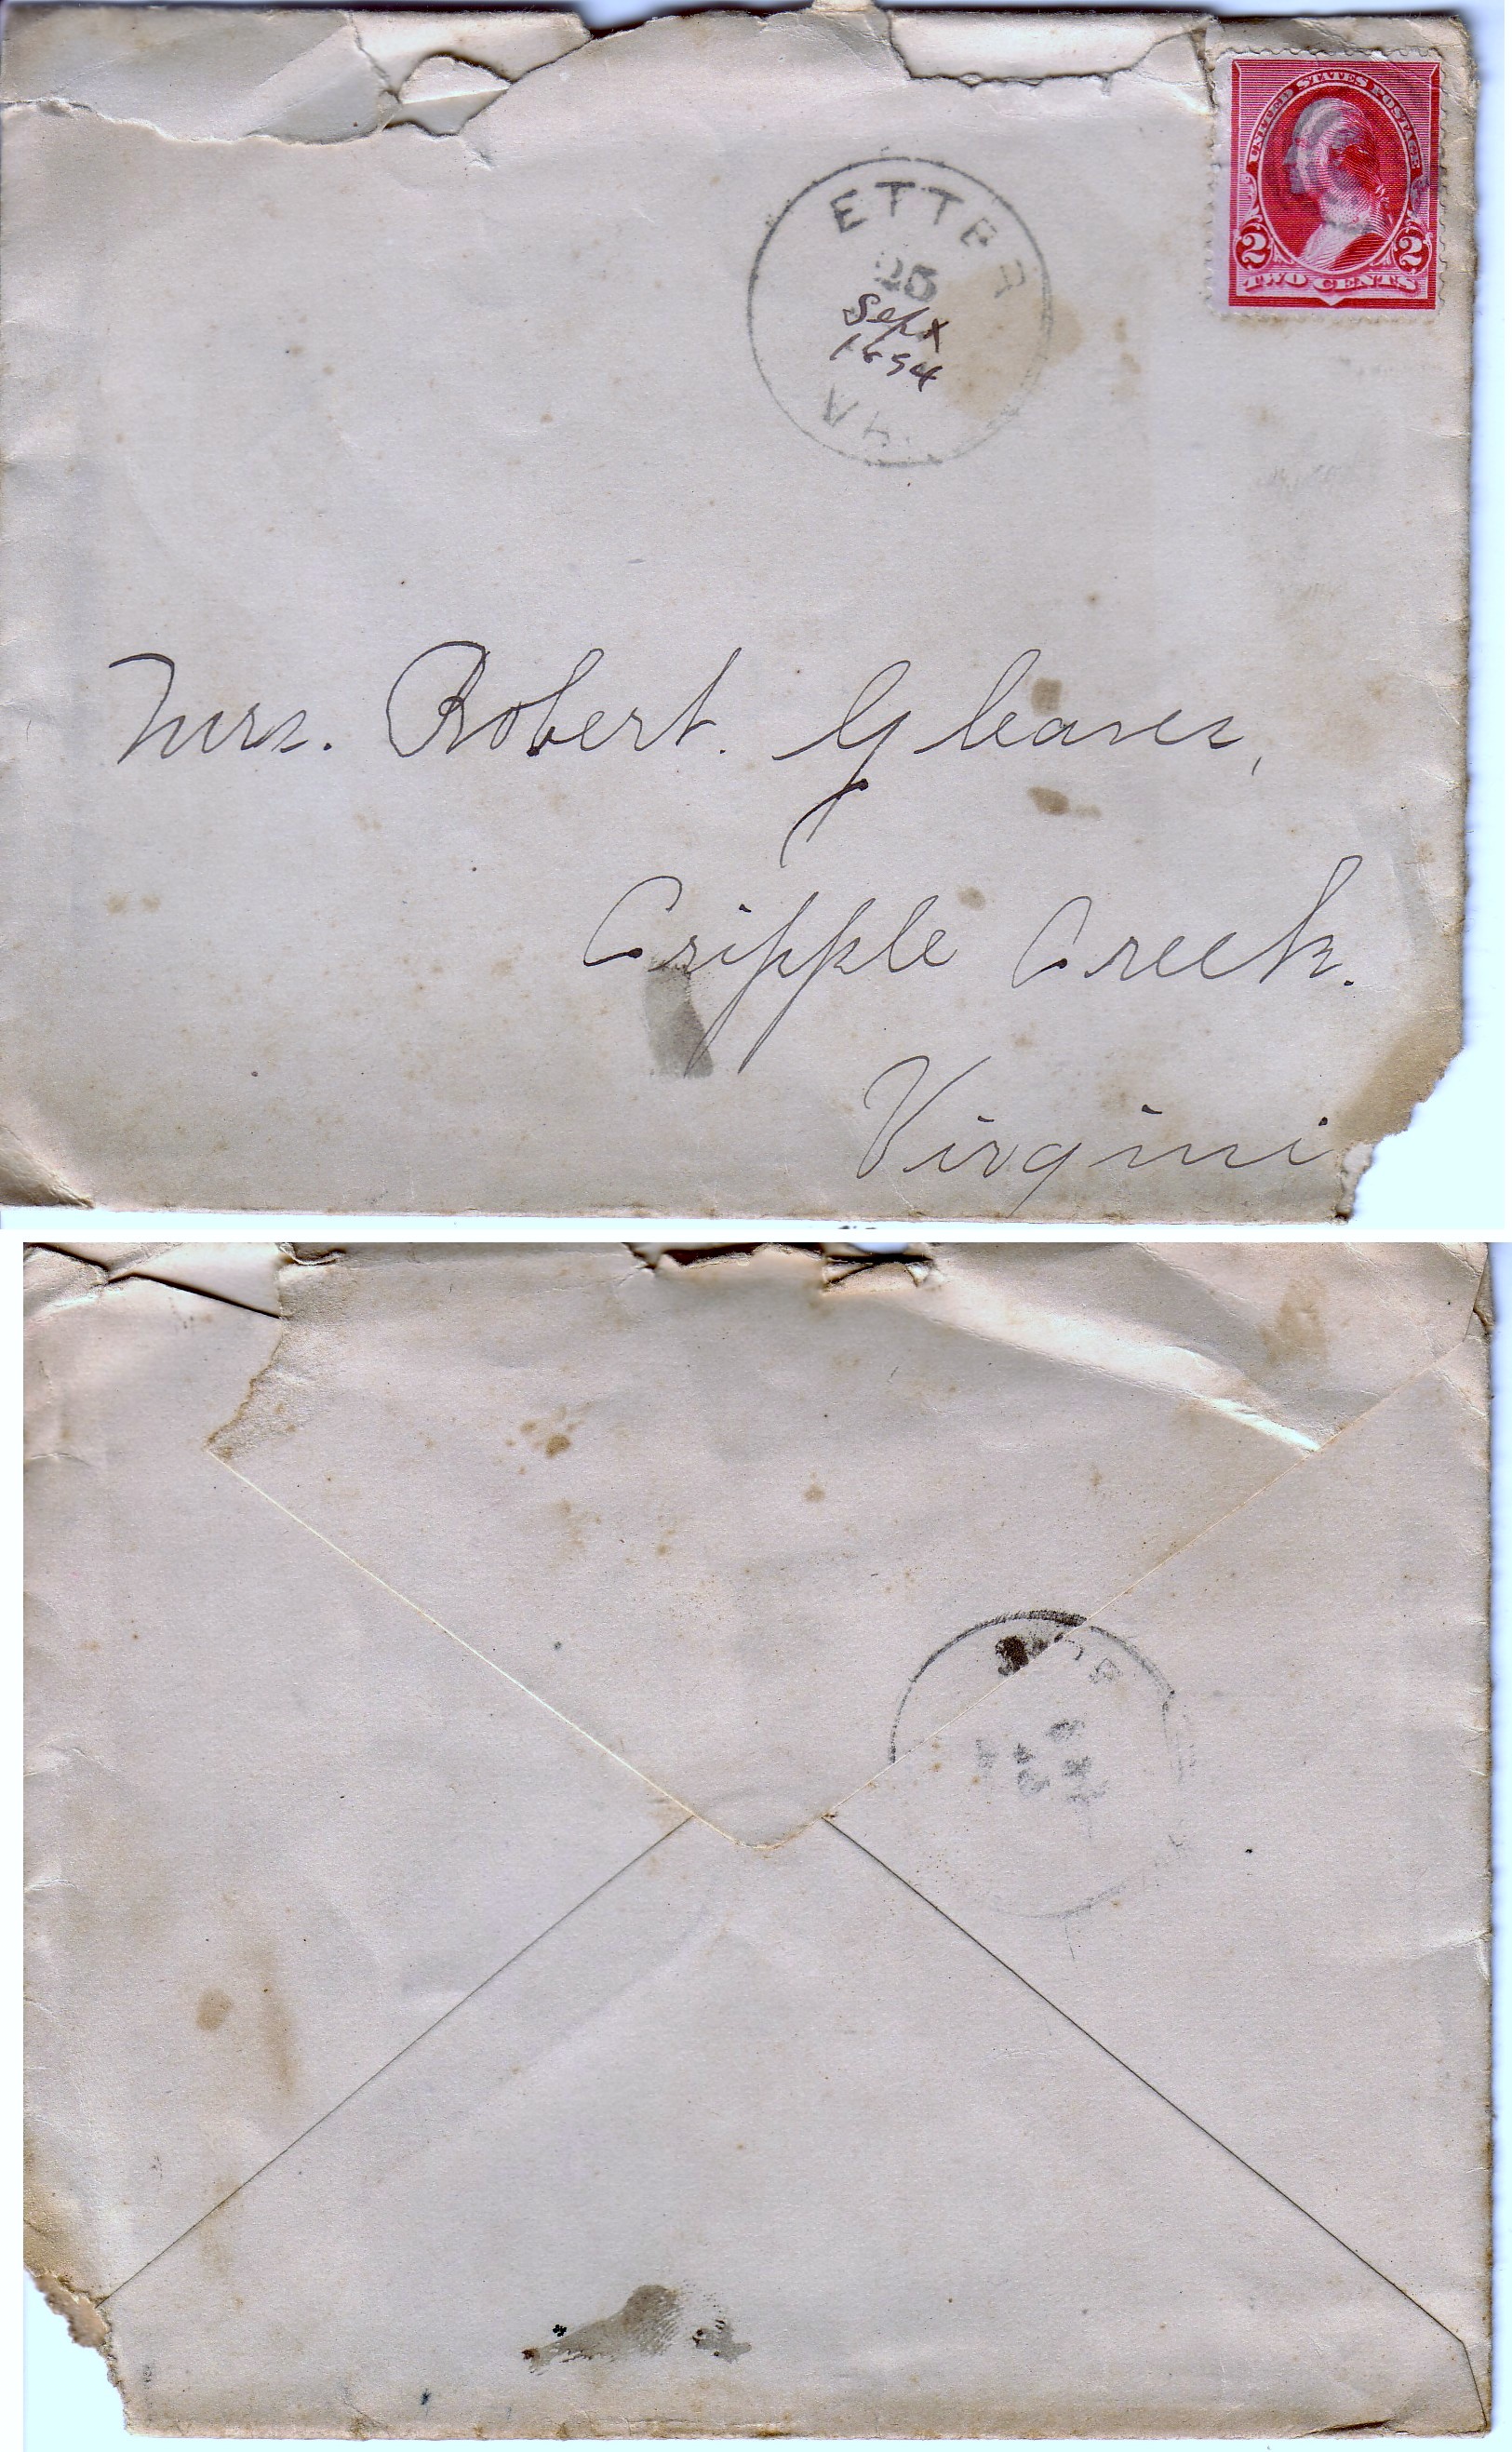 UNITED STATES POSTAGE
2 2
TWO CENTS
ETTER
25
Sept
1894
VA.
Mrs. Robert. Gleaves,
Cripple Creek.
Virgini